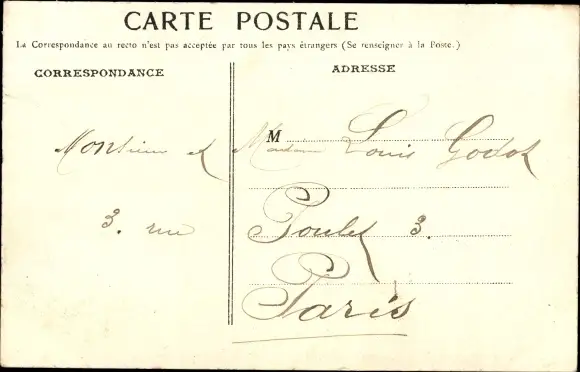 CARTE POSTALE
La Correspondance au recto n'est pas acceptée par tous les pays étrangers (Se renseigner à la Poste.)
CORRESPONDANCE
ADRESSE
M
Monsieur et Madame Louis Godot
3. rue Poulet 3.
Paris